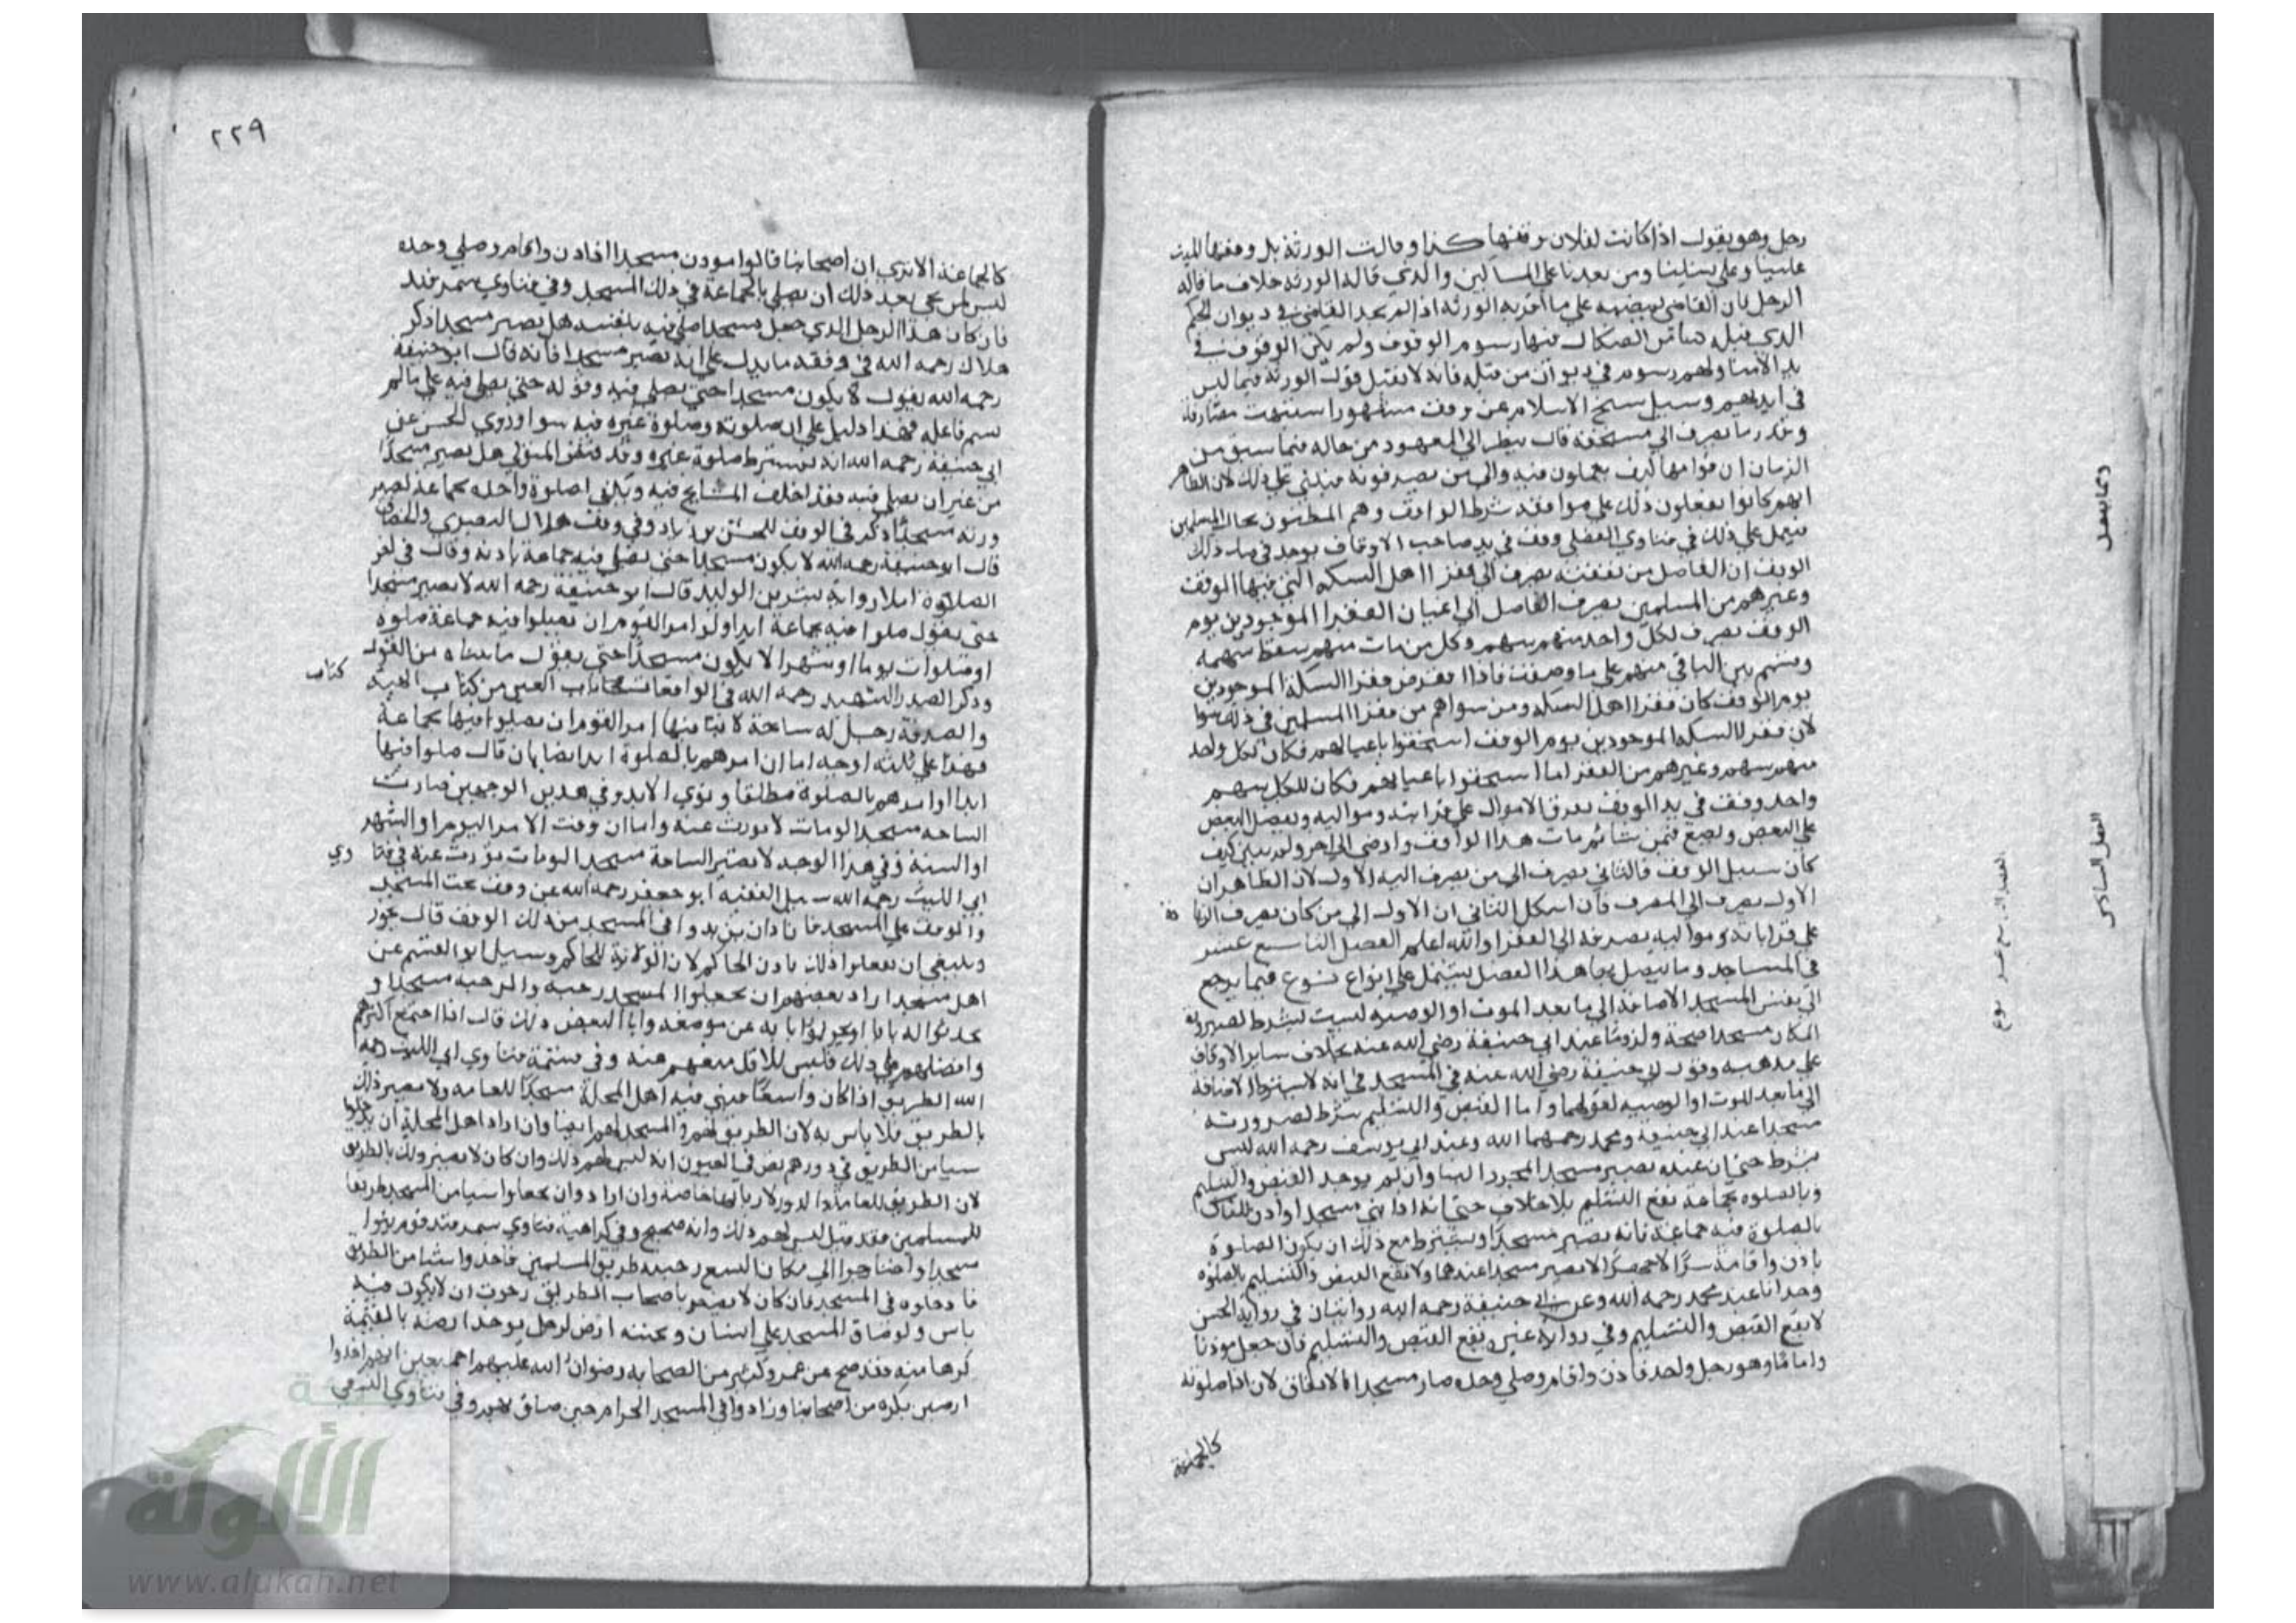 رجل وهو يقول اذا كانت لفلان وقفها كذا وقالت الورثة بل وقفها الميت
علينا وعلى نسلنا ومن بعدنا على المساكين والذي قاله الورثة خلاف ما قاله
الرجل فان القاضي يمضيه على ما اقر به الورثة اذا لم يجد القاضي في ديوان الحكم
الذي قبله الوقوف ولم يكن الوقوف في
يد الامنا ولهم رسوم في ديوان من قبله فانه لا يقبل قول الورثة فيما ليس
في ايديهم وسيل شيخ الاسلام عن وقف مشهور اشتبهت مصارفه
وقدر ما يصرف الى مستحقه قال ينظر الى المعهود من حاله فيما سبق من
الزمان ان قوامها كيف يعملون فيه والى من يصرفونه فيبني على ذلك لان الظاهر
انهم كانوا يفعلون ذلك على موافقة شرط الواقف وهم المظنون بحال المسلمين
فيعمل على ذلك في فتاوي الفضلي وقف في يد صاحب الاوقاف يوجد في ذلك
الوقف ان الفاضل من نفقته يصرف الى فقرا اهل السكة التي فيها الوقف
وغيرهم من المسلمين يصرف الفاضل الى اعيان الفقرا الموجودين يوم
الوقف يصرف لكل واحد منهم سهم وكل من مات منهم سقط سهمه
وقسم بين الباقي منهم على ما وصفت فاذا انقرض فقرا السكة الموجودين
يوم الوقف كان فقرا اهل السكة ومن سواهم من فقرا المسلمين في ذلك سوا
لان فقرا السكة الموجودين يوم الوقف استحقوا باعيانهم فكان لكل واحد
منهم سهم وغيرهم من الفقرا ما استحقوا باعيانهم فكان للكل سهم
واحد وقف في يد الموقف يفرق الاموال على قرابته ومواليه ويفضل البعض
على البعض ويضع فيمن شا ثم مات هذا الواقف واوصى الى اخر ولم يبين كيف
كان سبيل الوقف فالثاني يصرف الى من يصرف اليه الاول لان الظاهر ان
الاول يصرف الى المصرف فان اشكل الثاني ان الاول الى من كان يصرف
على قراباته ومواليه يصرفه الى الفقرا والله اعلم الفصل التاسع عشر
في المساجد وما يتصل بها هذا الفصل يشتمل على انواع نوع فيما يرجع
الى نفس المسجد الاضافة الى ما بعد الموت او الوصية ليست بشرط لصيرورة
المكان مسجدا صحة ولزوما عند ابي حنيفة رضي الله عنه بخلاف ساير الاوقاف
على مذهبه وقول ابي حنيفة رضي الله عنه في المسجد في انه لا يشترط الاضافة
الى ما بعد الموت او الوصية كقولهما واما القبض والتسليم شرط لصيرورته
مسجدا عند ابي حنيفة ومحمد رحمهما الله وعند ابي يوسف رحمه الله ليس
بشرط حتى ان عنده يصير مسجدا بمجرد البنا وان لم يوجد القبض والتسليم
وبالصلوة بجماعة يقع التسليم بلا خلاف حتى انه اذا بنى مسجدا واذن للناس
بالصلوة فيه جماعة فانه يصير مسجدا ويشترط مع ذلك ان يكون الصلوة
باذن واقامة سرا لا جهرا لا يصير مسجدا عندهما ولا يقع القبض والتسليم بالصلوة
وحدانا عند محمد رحمه الله وعن ابي حنيفة رحمه الله روايتان في رواية الحسن
لا يقع القبض والتسليم وفي رواية غيره يقع القبض والتسليم فان جعل موذنا
واماما وهو رجل واحد فاذن واقام وصلى وحده صار مسجدا بالاتفاق لان صلوته
٢٢٩
كالجماعة الا ترى ان اصحابنا قالوا موذن مسجد اذا اذن واقام وصلى وحده
ليس لمن يجي بعد ذلك ان يصلي بالجماعة في ذلك المسجد وفي فتاوي سمرقند
فان كان هذا الرجل الذي جعل مسجدا صلى فيه بنفسه هل يصير مسجدا ذكر
هلال رحمه الله في وقفه ما يدل على انه يصير مسجدا فانه قال ابو حنيفة
رحمه الله يقول لا يكون مسجدا حتى يصلى فيه وقوله حتى يصلى فيه على ما لم
يسم فاعله فهذا دليل على ان صلوته وصلوة غيره فيه سوا وروي الحسن عن
ابي حنيفة رحمه الله انه يشترط صلوة غيره هل يصير مسجدا
من غير ان يصلى فيه فقد اختلف المشايخ فيه صلوة واحدة بجماعة
ورته مسجدا ذكر في الوقف للحسن بن زياد وفي وقف هلال البصري والخصاف
قال ابو حنيفة رحمه الله لا يكون مسجدا حتى يصلى فيه جماعة باذنه وقال في
الصلاة املا رواية بشر بن الوليد قال ابو حنيفة رحمه الله لا يصير مسجدا
حتى يقول صلوا فيه بجماعة ابدا ولو امر القوم ان يصلوا فيه جماعة صلوة
او صلوات يوما او شهرا لا يكون مسجدا حتى يقول ما بينا من القول
وذكر الصدر الشهيد رحمه الله في الواقعات من كتاب الهبة
والصدقة رجل له ساحة لا بنا فيها امر القوم ان يصلوا فيها بجماعة
فهذا على ثلثة اوجه اما ان امرهم بالصلوة ابدا نصا بان قال صلوا فيها
ابدا او امرهم بالصلوة مطلقا ونوى الابد وفي هذين الوجهين صارت
الساحة مسجدا لو مات لا يورث عنه واما ان وقت الامر اليوم او الشهر
او السنة ففي هذا الوجه لا تصير الساحة مسجدا لو مات يورث عنه في فتاوي
ابي الليث رحمه الله سيل الفقيه ابو جعفر رحمه الله عن وقف تحت المسجد
والوقف على المسجد فارادوا ان يزيدوا في المسجد من ذلك الوقف قال يجوز
وينبغي ان يفعلوا ذلك باذن الحاكم لان الولاية للحاكم وسيل ابو القسم عن
اهل مسجد اراد بعضهم ان يجعلوا المسجد رحبة والرحبة مسجدا و
يحدثوا له بابا او يحولوا بابه عن موضعه وابا البعض ذلك قال اذا اجتمع اكثرهم
وافضلهم على ذلك فليس للاقل منعهم عنه وفي فتاوي ابي الليث رحمه
الله الطريق اذا كان واسعا فبنى فيه اهل المحلة مسجدا للعامة ولا يضر ذلك
بالطريق فلا باس به لان الطريق لهم والمسجد لهم ايضا وان اراد اهل المحلة ان يدخلوا
شيا من الطريق في دورهم نص في العيون انه ليس لهم ذلك وان كان لا يضر ذلك بالطريق
لان الطريق للعامة والدور لاربابها خاصة وان ارادوا ان يجعلوا شيا من المسجد طريقا
للمسلمين فقد قيل ليس لهم ذلك وانه صحيح وفي كراهية فتاوي سمرقند قوم بنوا
مسجدا واحتاجوا الى مكان ليتسع طريق المسلمين فاخذوا شيا من الطريق
فادخلوه في المسجد فان كان لا يضر باصحاب الطريق رجوت ان لا يكون فيه
باس ولو ضاق المسجد على الناس وبجنبه ارض لرجل يوخذ ارضه بالقيمة
كرها منه فقد صح عن عمر وكثير من الصحابة رضوان الله عليهم اجمعين انهم اخذوا
ارضين بكره من اصحابنا وزادوا في المسجد الحرام حين ضاق بهم وفي فتاوي النسفي
كتاب
الألوكة
www.alukah.net